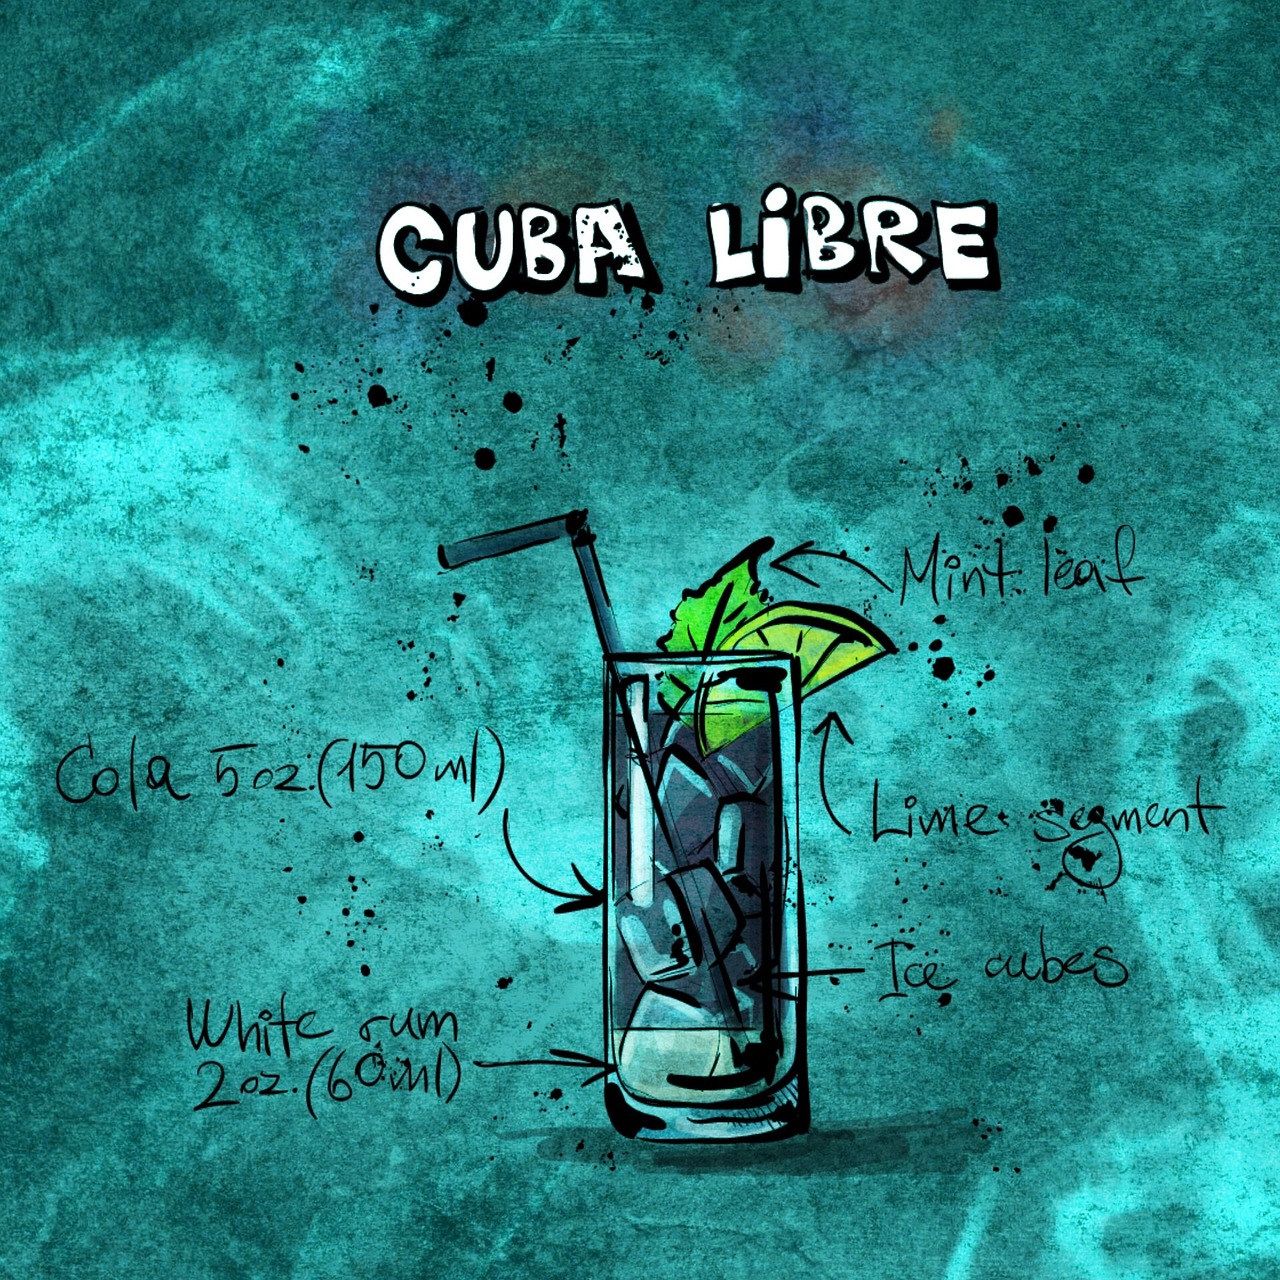 CUBA LiBRE
Mint leaf
Cola 5 oz.(150 ml)
Lime segment
Ice cubes
White rum
2 oz.(60 ml)